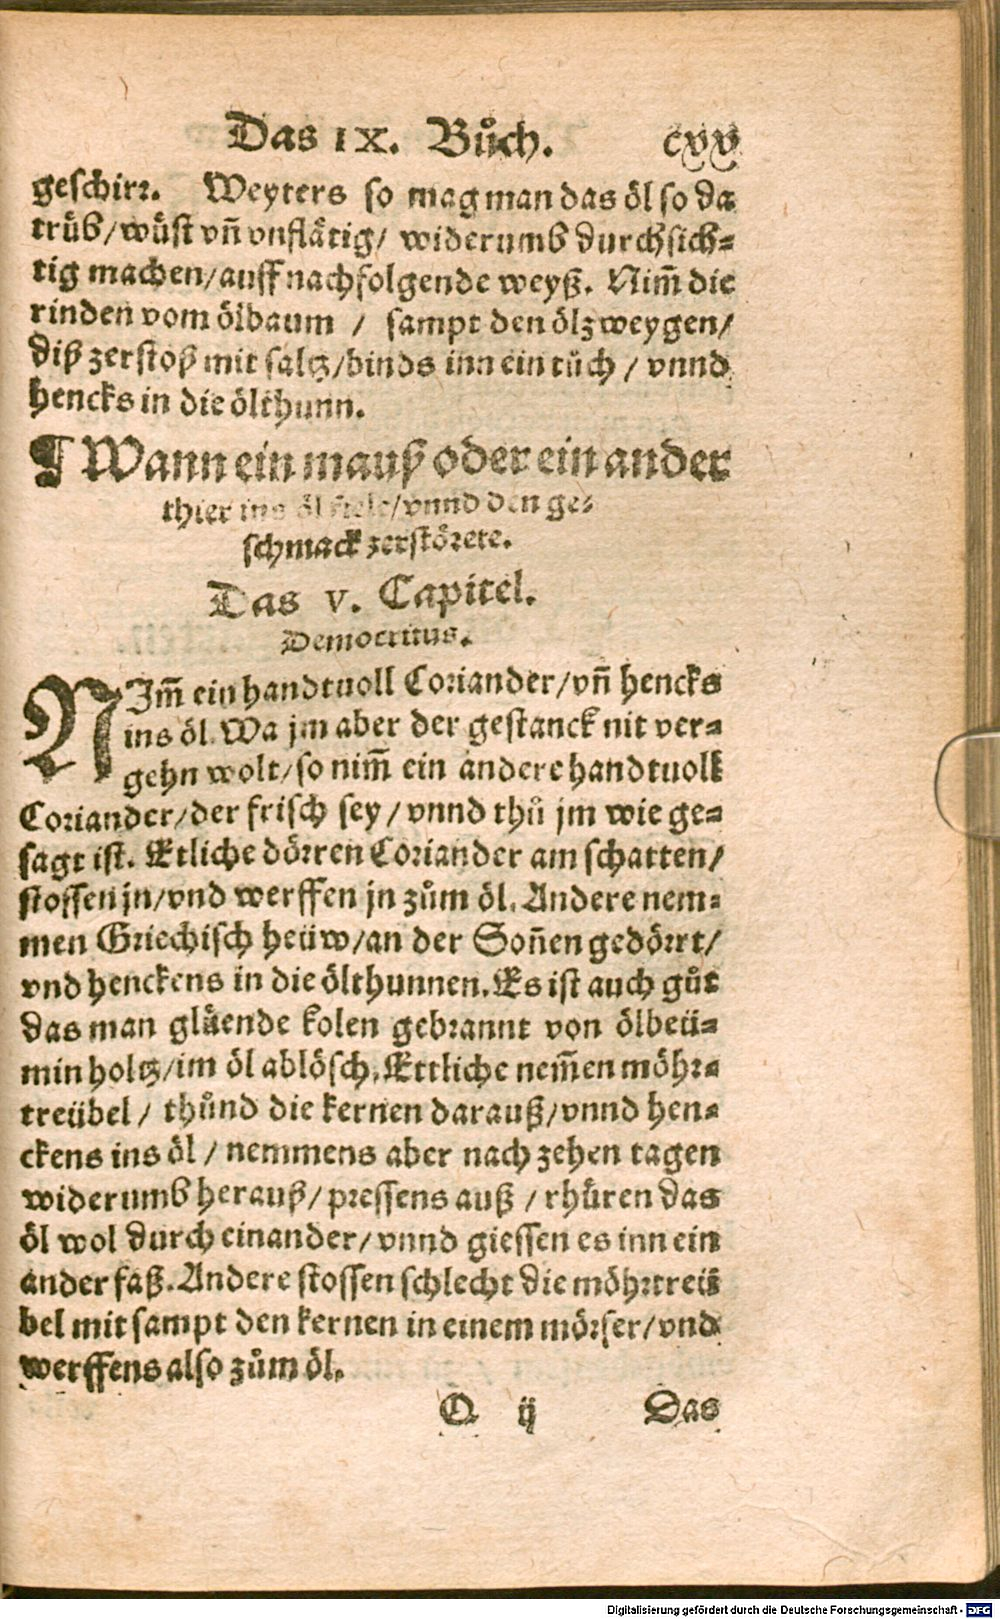 Das IX. Bůch. cxv
geschirr. Weyters so mag man das öl so da
trüb/wüst vñ vnflätig/ widerumb durchsich⸗
tig machen/auff nachfolgende weyß. Nim̃ die
rinden vom ölbaum / sampt den ölzweygen/
diß zerstoß mit saltz/binds inn ein tůch / vnnd
hencks in die ölthunn.
¶ Wann ein mauß oder ein ander
thier ins öl fiele/vnnd den ge⸗
schmack zerstörete.
Das v. Capitel.
Democritus.
NIm̃ ein handtuoll Coriander/vñ hencks
ins öl. Wa jm aber der gestanck nit ver⸗
gehn wolt/so nim̃ ein andere handtuoll
Coriander/der frisch sey/vnnd thů jm wie ge⸗
sagt ist. Etliche dörren Coriander am schatten/
stossen jn/vnd werffen jn zům öl. Andere nem⸗
men Griechisch heüw/an der Soñen gedörrt/
vnd henckens in die ölthunnen. Es ist auch gůt
das man glüende kolen gebrannt von ölbeü⸗
min holtz/im öl ablösch. Ettliche nem̃en möhr⸗
treübel / thůnd die kernen darauß/vnnd hen⸗
ckens ins öl / nemmens aber nach zehen tagen
widerumb herauß/ pressens auß / rhüren das
öl wol durch einander/vnnd giessen es inn ein
ander faß. Andere stossen schlecht die möhrtreü
bel mit sampt den kernen in einem mörser/vnd
werffens also zům öl.
O ij Das
Digitalisierung gefördert durch die Deutsche Forschungsgemeinschaft - DFG